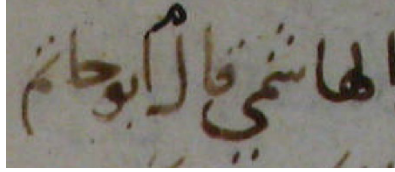 الهاشمي قال أبو حاتم